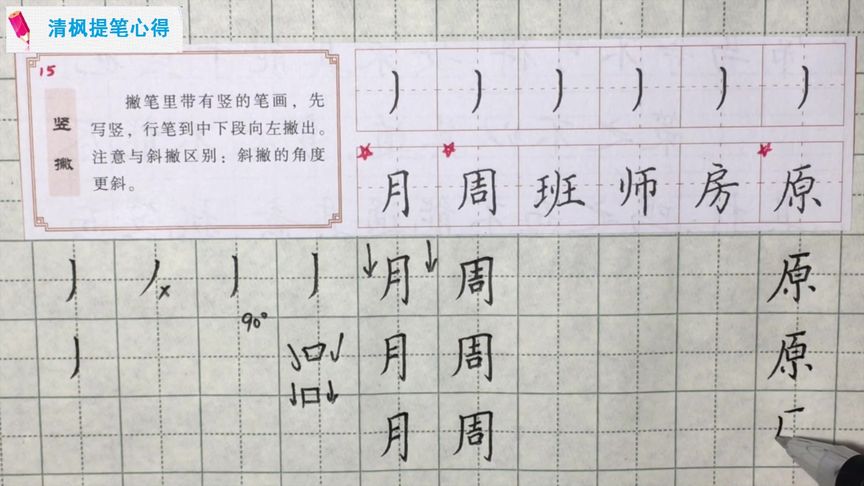 清枫提笔心得
15
竖撇
撇笔里带有竖的笔画，先
写竖，行笔到中下段向左撇出。
注意与斜撇区别：斜撇的角度
更斜。
丿 丿 丿 丿 丿 丿
月 周 班 师 房 原
丿 丿 x 丿 丿 ↓月↓ 周 原
90°
丿 口 月 周 原
↓口↓
月 周